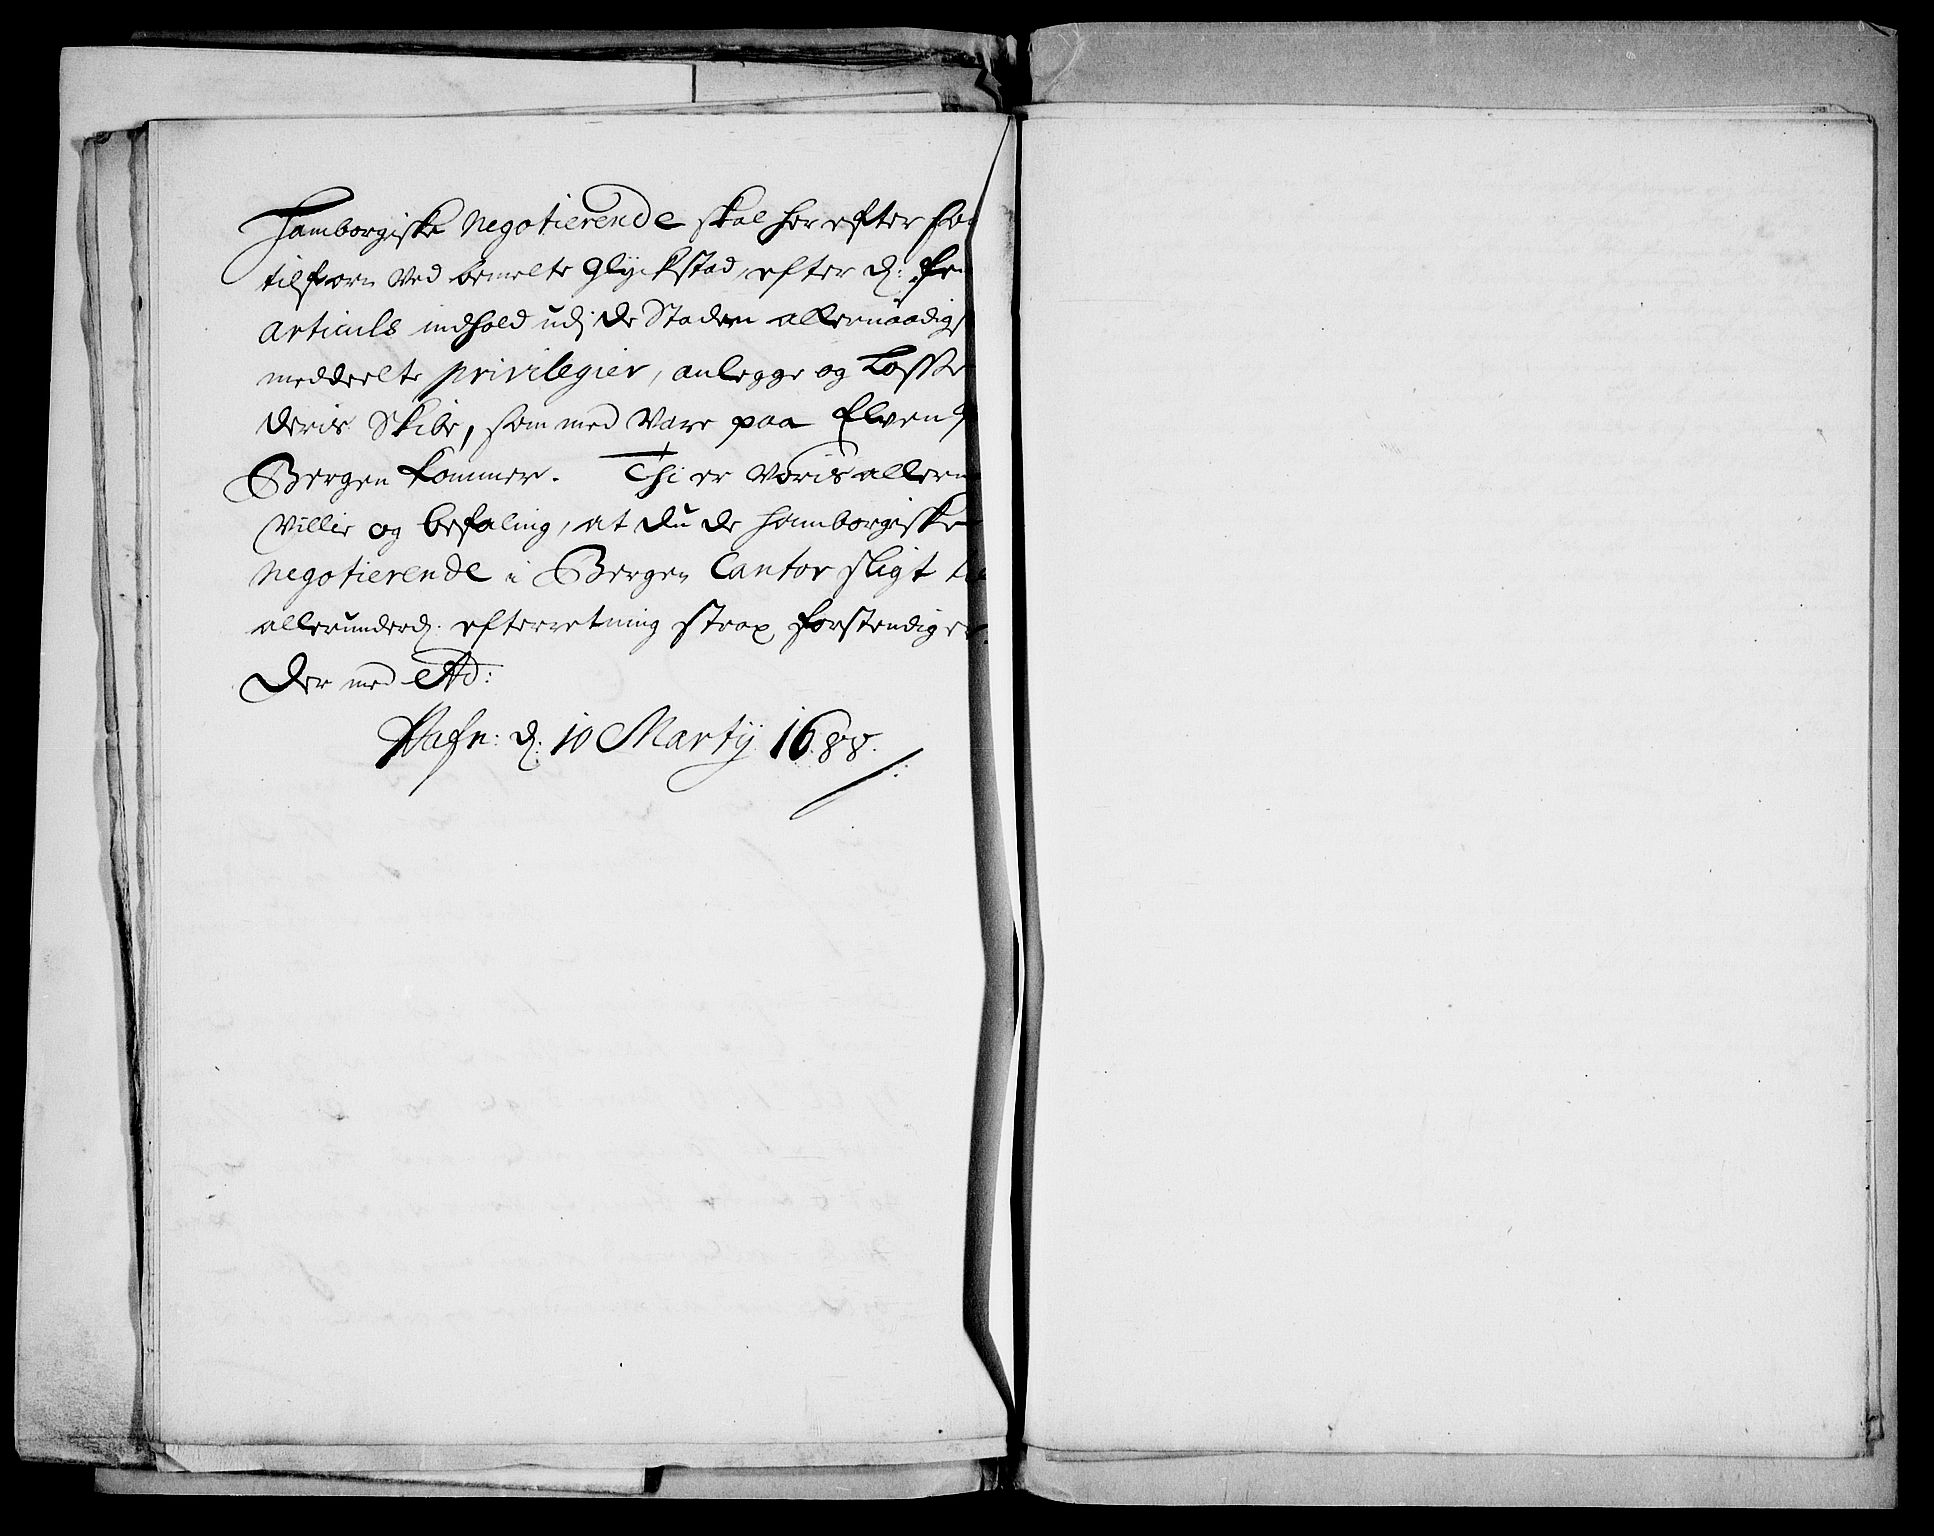 Hamborgiske Negotierende skal her efter som
tilforn ved bemelte Glyckstad, efter d:
articuls indhold udj de Staden allernaadigst
meddeelte privilegier, anlegge og Losse
deris Skibe, som med Vare paa Elven
Bergen kommer. Thi er Voris allern
Villie og befaling, at du de Hamborgiske
Negotierende i Bergen Cantor sligt til
allerunderd: efterretning strax forstendiger.
Der med
Hafn: d: 10 Martij 1688.